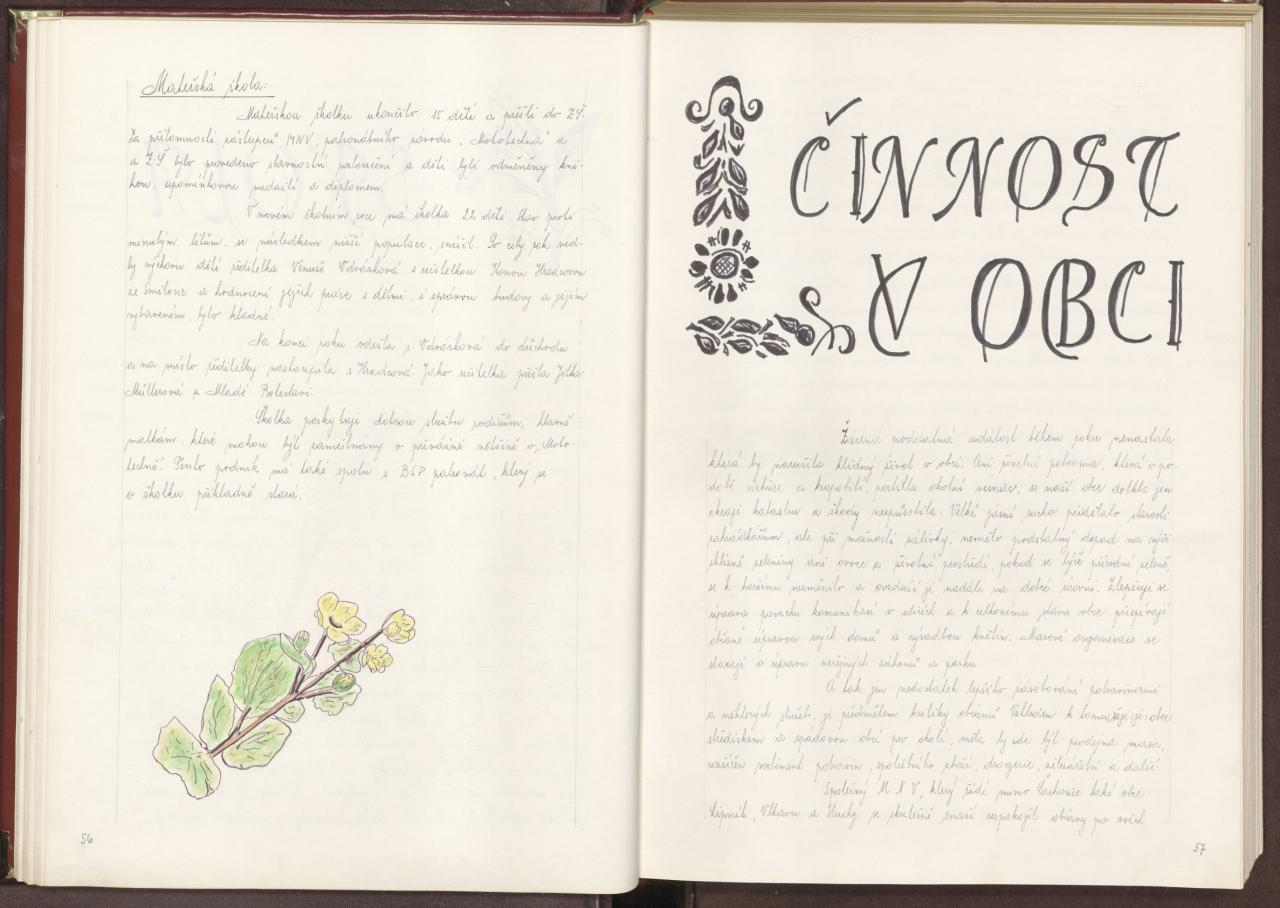 Mateřská škola:
Mateřskou školku ukončilo 15 dětí a přešli do ZŠ.
Za přítomnosti zástupců MNV, patronátního závodu „Mototechna" a
a ZŠ bylo provedeno slavnostní rozloučení a děti byli odměněny kni-
hou, upomínkovou medailí a diplomem.
V novém školním roce má školka 22 dětí. Stav proti
minulým létům, se následkem nižší populace, snížil. Po celý rok ved-
ly výchovu dětí ředitelka Venuše Vdvořáková s učitelkou Hanou Hradcovou
ze Smilovic a hodnocení jejich práce s dětmi, i správou budovy a jejím
vybavením, bylo kladné.
Na konci roku odešla s. do důchodu
a na místo ředitelky nastoupila s. Hradcová. Jako učitelka přišla Jitka
Müllerová z Mladé Boleslavi.
Školka poskytuje dobrou službu rodičům, hlavně
matkám, které mohou být zaměstnány v převážné většině v „Moto-
techně". Tento podnik má také spolu s BSP patronát, který se
o školku příkladně stará.
56
ČINNOST
V OBCI
Žádná podstatná událost během roku nenastala,
která by narušila klidný život v obci. Ani živelní pohroma, která v po-
době vichřice a krupobití, postihla okolní vesnice, se naší obce dotkla jen
okraji katastru a škody nezpůsobila. Velké jarní sucho přidělalo starosti
zahrádkářům, ale při možnosti zálivky, nemělo podstatný dopad na výši
sklizně zeleniny ani ovoce a životní prostředí, pokud se týče přírodní zeleně,
se k horšímu nezměnilo a ovzduší je nadále na dobré úrovni. Zlepšuje se
úprava povrchu komunikací v ulicích a k celkovému stavu obce přispívají
občané úpravou svých domů a výsadbou květin. Masové organizace se
starají o úpravu veřejných záhonů a parku.
A tak jen nedostatek lepšího zásobování potravinami
a některých služeb, je předmětem kritiky občanů. Vzhledem k tomu, že je obec
střediskem a spádovou obcí pro okolí, měla by zde být prodejna masa,
rozšířen sortiment potravin, spotřebního zboží, drogerie, a další.
Společný MNV, který řídí mimo Čachovice také obce
Lipník, Vlkavu a Struhy se skutečně snaží uspokojit občany po všech
57